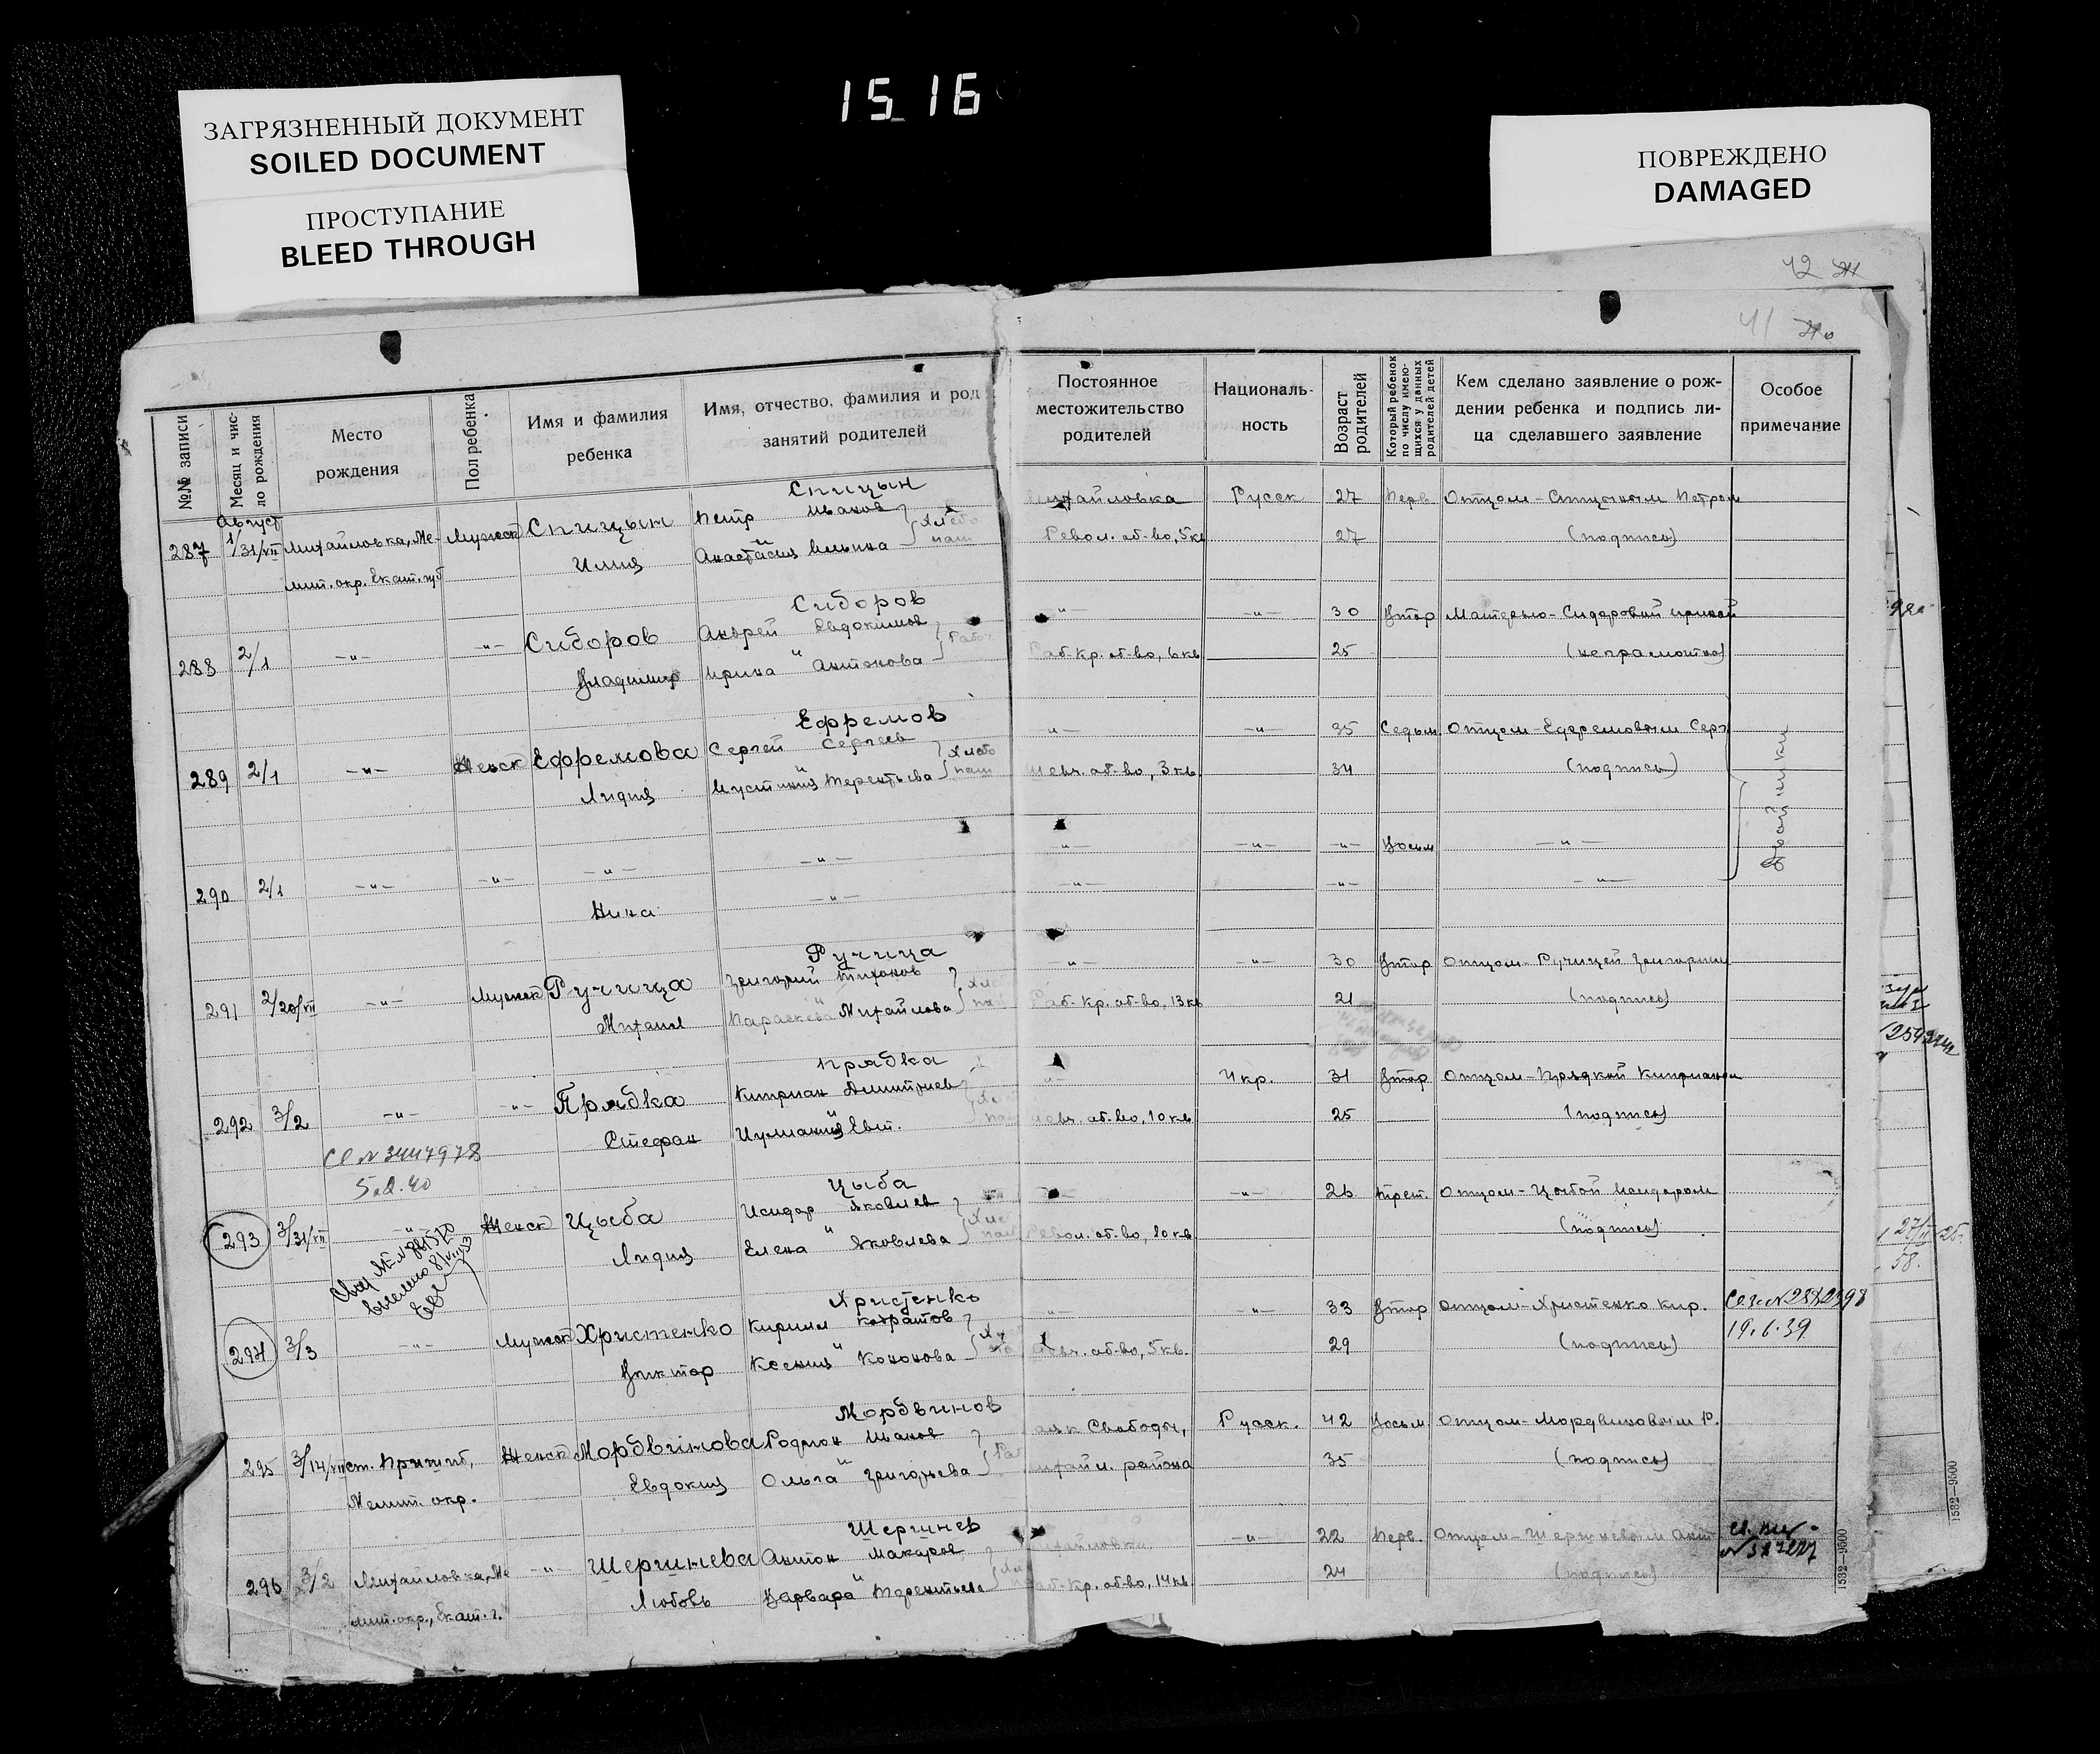 15 16
ЗАГРЯЗНЕННЫЙ ДОКУМЕНТ
SOILED DOCUMENT
ПРОСТУПАНИЕ
BLEED THROUGH
ПОВРЕЖДЕНО
DAMAGED
42
41
№№ записи
Месяц и чис-
ло рождения
Место
рождения
Пол ребенка
Имя и фамилия
ребенка
Имя, отчество, фамилия и род
занятий родителей
Постоянное
местожительство
родителей
Националь-
ность
Возраст
родителей
Который ребенок
по числу имею-
щихся у данных
родителей детей
Кем сделано заявление о рож-
дении ребенка и подпись ли-
ца сделавшего заявление
Особое
примечание
Август Спицын
287 1/31/VII Михайловка, Ме- Мужск Спицын Петр Иванов Хлебо Михайловка Русск 27 Перв Отцом - Спицыным Петром
лит. окр. Екат. губ Илия Анастасия Ильина паш Револ. об-во, 5 кв 27 (подпись)
Сидоров
288 2/1 -"- -"- Сидоров Андрей Евдокимов -"- -"- 30 Втор Матерью - Сидоровой Ириной
Владимир Ирина " Антонова Раб. Кр. об-во, 6 кв 25 (неграмотна)
Ефремов
289 2/1 -"- Женск Ефремова Сергей Сергеев Хлебо -"- -"- 35 Седьм Отцом - Ефремовым Серг
Лидия Иустиния Терентьева паш Шевч. об-во, 3 кв 34 (подпись)
Двойники
290 2/1 -"- -"- -"- -"- -"- -"- -"- Восьм -"-
Нина -"- -"- -"- -"-
Ручица
291 2/20/VII -"- Мужск Ручица Григорий Тихонов -"- -"- 30 Втор Отцом - Ручицей Григорием
Михаил Параскева Михайлова Раб. Кр. об-во, 13 кв 21 (подпись)
Прядка
292 3/2 -"- -"- Прядка Киприан Димитриев -"- Укр. 31 Втор Отцом - Прядкой Киприаном
Стефан Иулиания Евт. паш Шевч. об-во, 10 кв 25 (подпись)
Св № 3447978
5.2.40
Цыба
293 3/31/VII -"- Женск Цыба Исидор Яковлев -"- 26 Трет. Отцом - Цыбой Исидором
Лидия Елена " Яковлева паш Револ. об-во, 20 кв (подпись)
Христенко
294 3/3 -"- Мужск Христенко Кирилл -"- -"- 33 Втор Отцом - Христенко Кир.
Виктор Ксения " Кононова Шевч. об-во, 5 кв. 29 (подпись)
19.6.39
Мордвинов
295 3/14/VII ст. Пришиб, Женск Мордвинова Родион Иванов Маяк Свободы, Русск. 42 Восьм Отцом - Мордвиновым Р.
Мелит. окр. Евдокия Ольга " Григорьева Михайл. района 35 (подпись)
Шергинев
296 3/2 Михайловка, Ме -"- Шергинева Антон Макаров Михайловка, -"- 22 Перв. Отцом - Шергиневым Ант
лит. окр., Екат. г. Любовь Варвара " Терентьева Раб. Кр. об-во, 14 кв 24 (подпись)
1532—9500
1532—9500